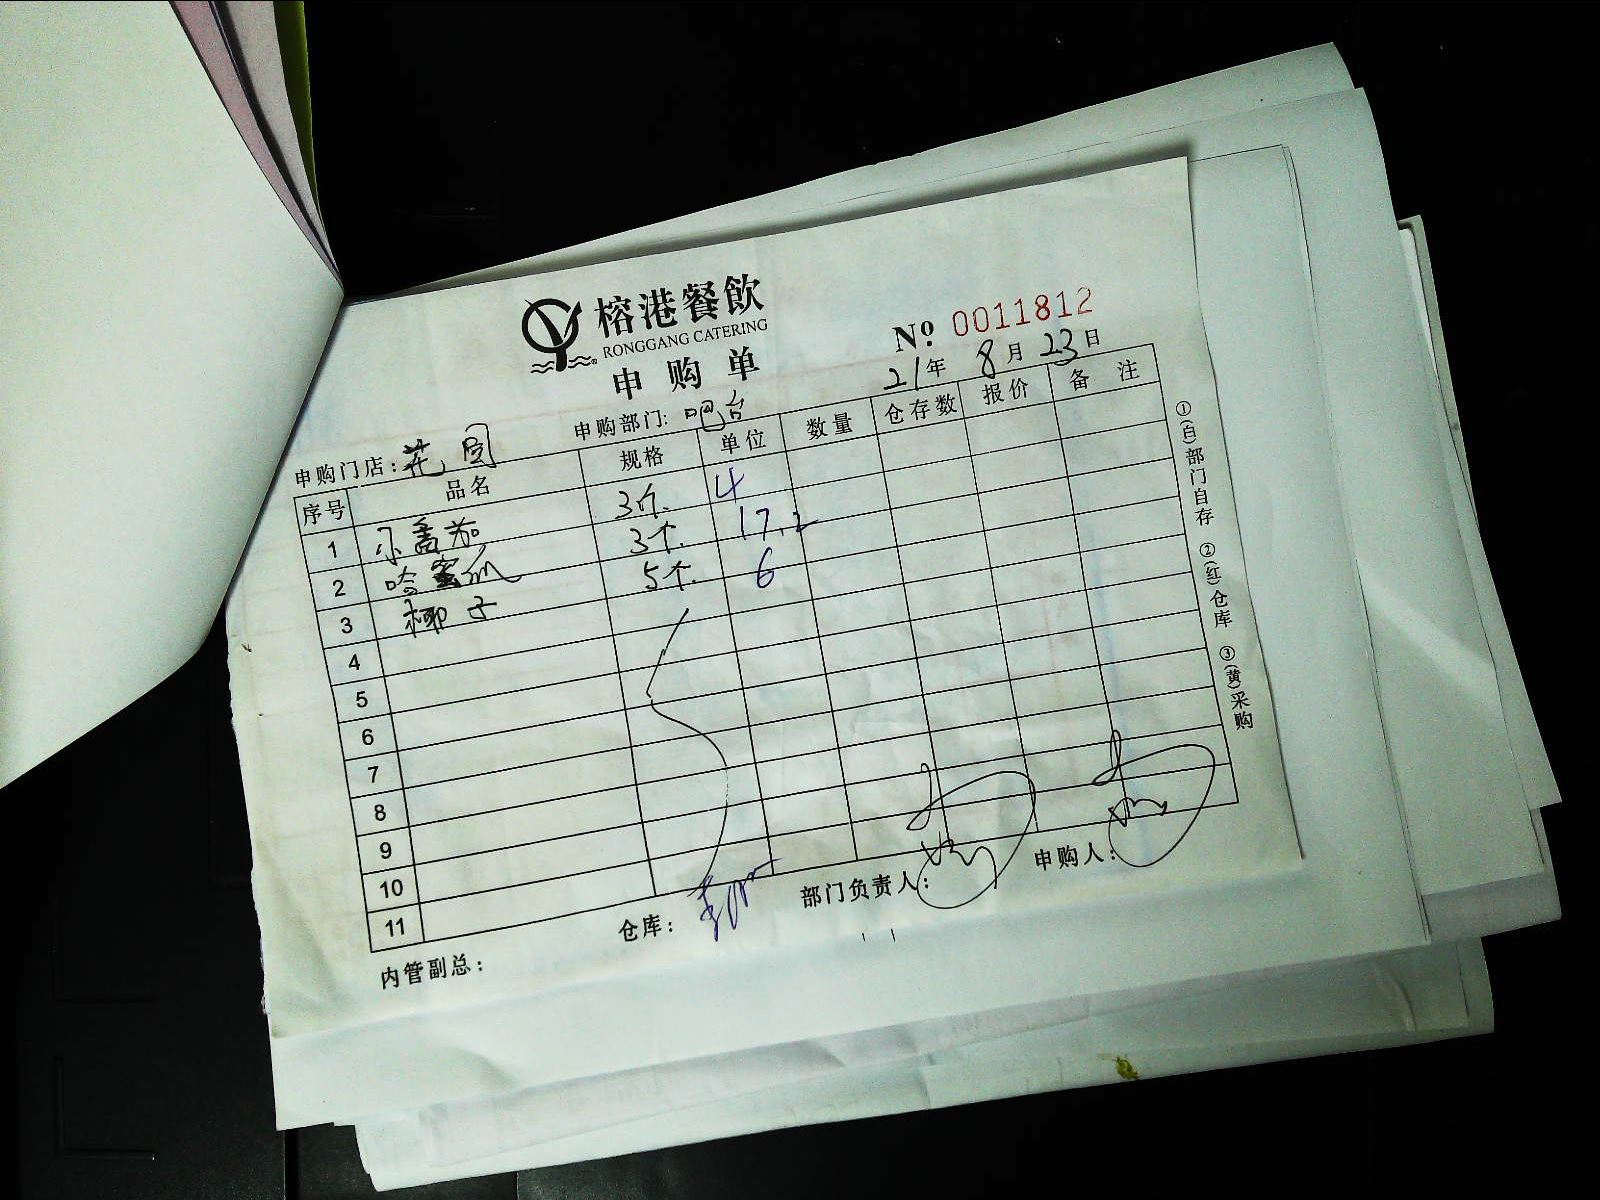 榕港餐飲
RONGGANG CATERING
申购单
№ 0011812
21年 8月 23日
申购门店: 花园 申购部门: 吧台
序号 品名 规格 单位 数量 仓存数 报价 备注
1 小番茄 3斤 4
2 哈蜜瓜 3个 17.2
3 椰子 5个 6
4
5
6
7
8
9
10
11
内管副总: 仓库: 部门负责人: 申购人:
①(白)部门自存 ②(红)仓库 ③(黄)采购